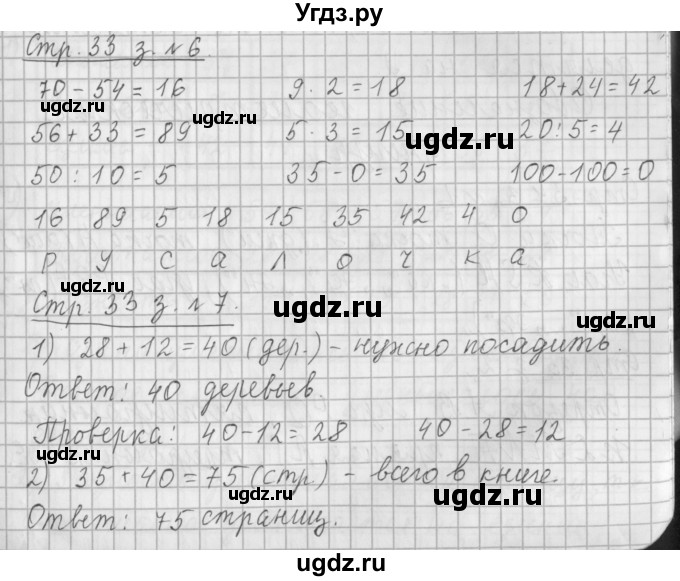 Угдз.ру
Стр. 33 з. № 6.
70 - 54 = 16 9 · 2 = 18 18 + 24 = 42
ugdz.ru ugdz.ru
ugdz.ru
56 + 33 = 89 5 · 3 = 15 20 : 5 = 4
50 : 10 = 5 35 - 0 = 35 100 - 100 = 0
ugdz.ru
16 89 5 18 15 35 42 4 0
р у с а л о ч к а
Стр. 33 з. № 7.
ugdz.ru ugdz.ru
1) 28 + 12 = 40 (дер.) - нужно посадить.
Ответ: 40 деревьев.
Проверка: 40 - 12 = 28 40 - 28 = 12
2) 35 + 40 = 75 (стр.) - всего в книге.
ugdz.ru ugdz.ru
Ответ: 75 страниц.
ugdz.ru ugdz.ru